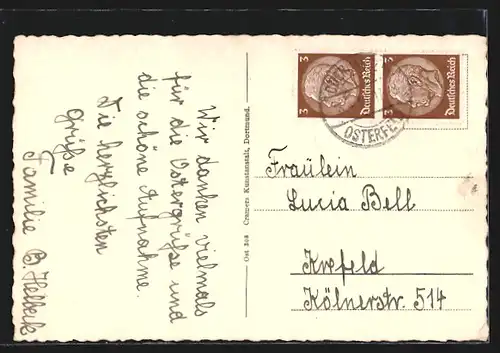 Wir danken vielmals
für die Ostergrüße und
die schöne Aufnahme.
Die herzlichsten
Grüße
Familie B.
Cramers Kunstanstalt, Dortmund.
Ost 308
3
Deutsches Reich
3
Deutsches Reich
Fräulein
Lucia Bell
Krefeld
Kölnerstr. 514